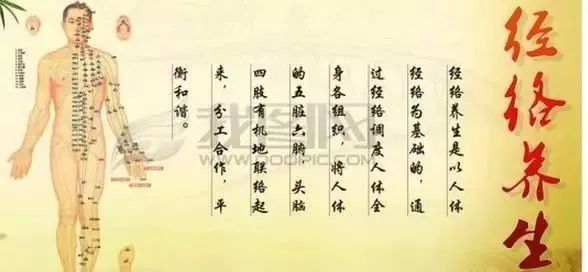 经络养生
经络养生是以人体
经络为基础的，通
过经络调度人体全
身各组织，将人体
的五脏六腑、头脑
四肢有机地联络起
来，分工合作，平
衡和谐。
我图网